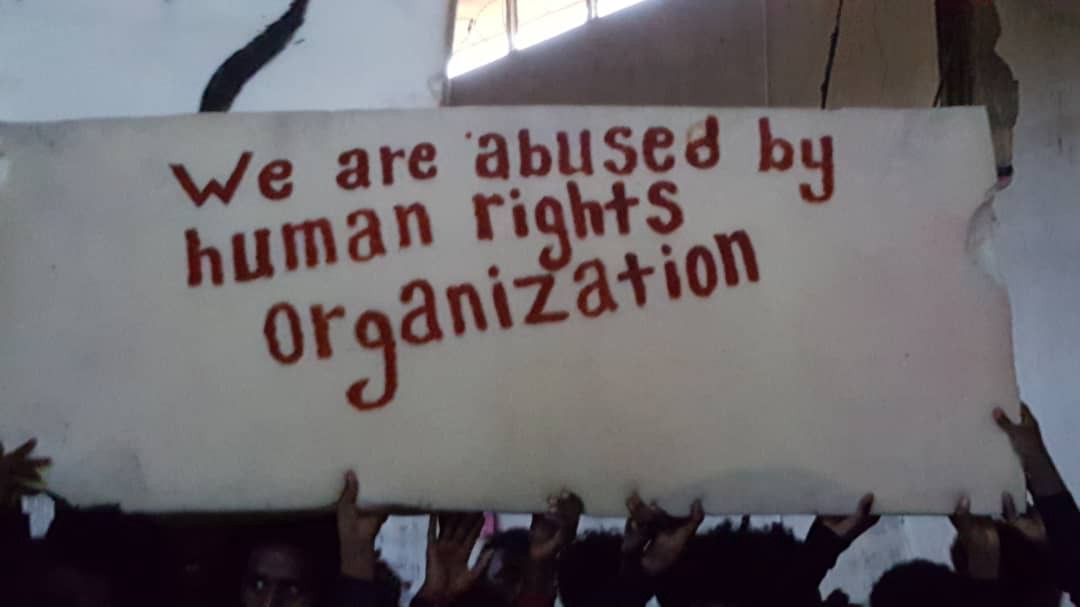 We are abused by
human rights
Organization